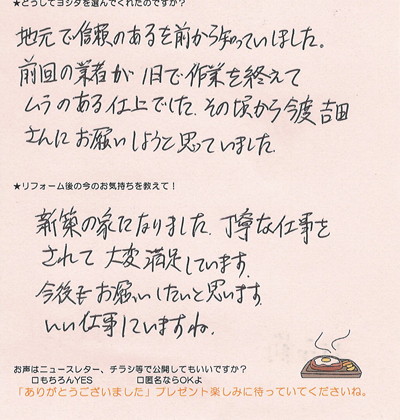 ★どうしてヨシダを選んでくれたのですか？
地元で信頼のあるを前から知っていました。
前回の業者が1日で作業を終えて
ムラのある仕上でした。その頃から今度吉田
さんにお願いしようと思っていました。
★リフォーム後の今のお気持ちを教えて！
新築の家になりました。丁寧な仕事を
されて大変満足しています。
今後もお願いしたいと思います。
いい仕事していますね。
お声はニュースレター、チラシ等で公開してもいいですか？
□もちろんYES □匿名ならOKよ
「ありがとうございました」プレゼント楽しみに待っていてくださいね。